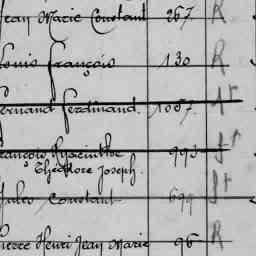 Jean Marie Constant 267. R
Louis François 130 R
Fernand Ferdinand. 1007.
François Hyacinthe 993
Théodore Joseph.
Jules Constant 699
Pierre Henri Jean Marie 96 R